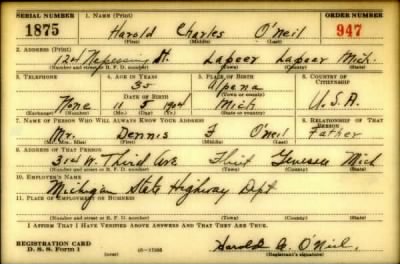 SERIAL NUMBER 1. NAME (Print) ORDER NUMBER
1875 Harold Charles O'Neil 947
(First) (Middle) (Last)
2. ADDRESS (Print)
124 Nepessing St. Lapeer Lapeer Mich.
(Number and street or R. F. D. number) (Town) (County) (State)
3. TELEPHONE 4. AGE IN YEARS 5. PLACE OF BIRTH 6. COUNTRY OF CITIZENSHIP
35 Alpena
DATE OF BIRTH (Town or county)
None 11 5 1904 Mich U.S.A.
(Exchange) (Number) (Mo.) (Day) (Yr.) (State or country)
7. NAME OF PERSON WHO WILL ALWAYS KNOW YOUR ADDRESS 8. RELATIONSHIP OF THAT PERSON
Mr. Dennis F O'Neil Father
(Mr., Mrs., Miss) (First) (Middle) (Last)
9. ADDRESS OF THAT PERSON
W. Third Ave Flint Genesee Mich
(Number and street or R. F. D. number) (Town) (County) (State)
10. EMPLOYER'S NAME
Michigan State Highway Dept
11. PLACE OF EMPLOYMENT OR BUSINESS
(Number and street or R. F. D. number) (Town) (County) (State)
I AFFIRM THAT I HAVE VERIFIED ABOVE ANSWERS AND THAT THEY ARE TRUE.
REGISTRATION CARD
D. S. S. Form 1 (over) Harold C. O'Neil
(Registrant's signature)